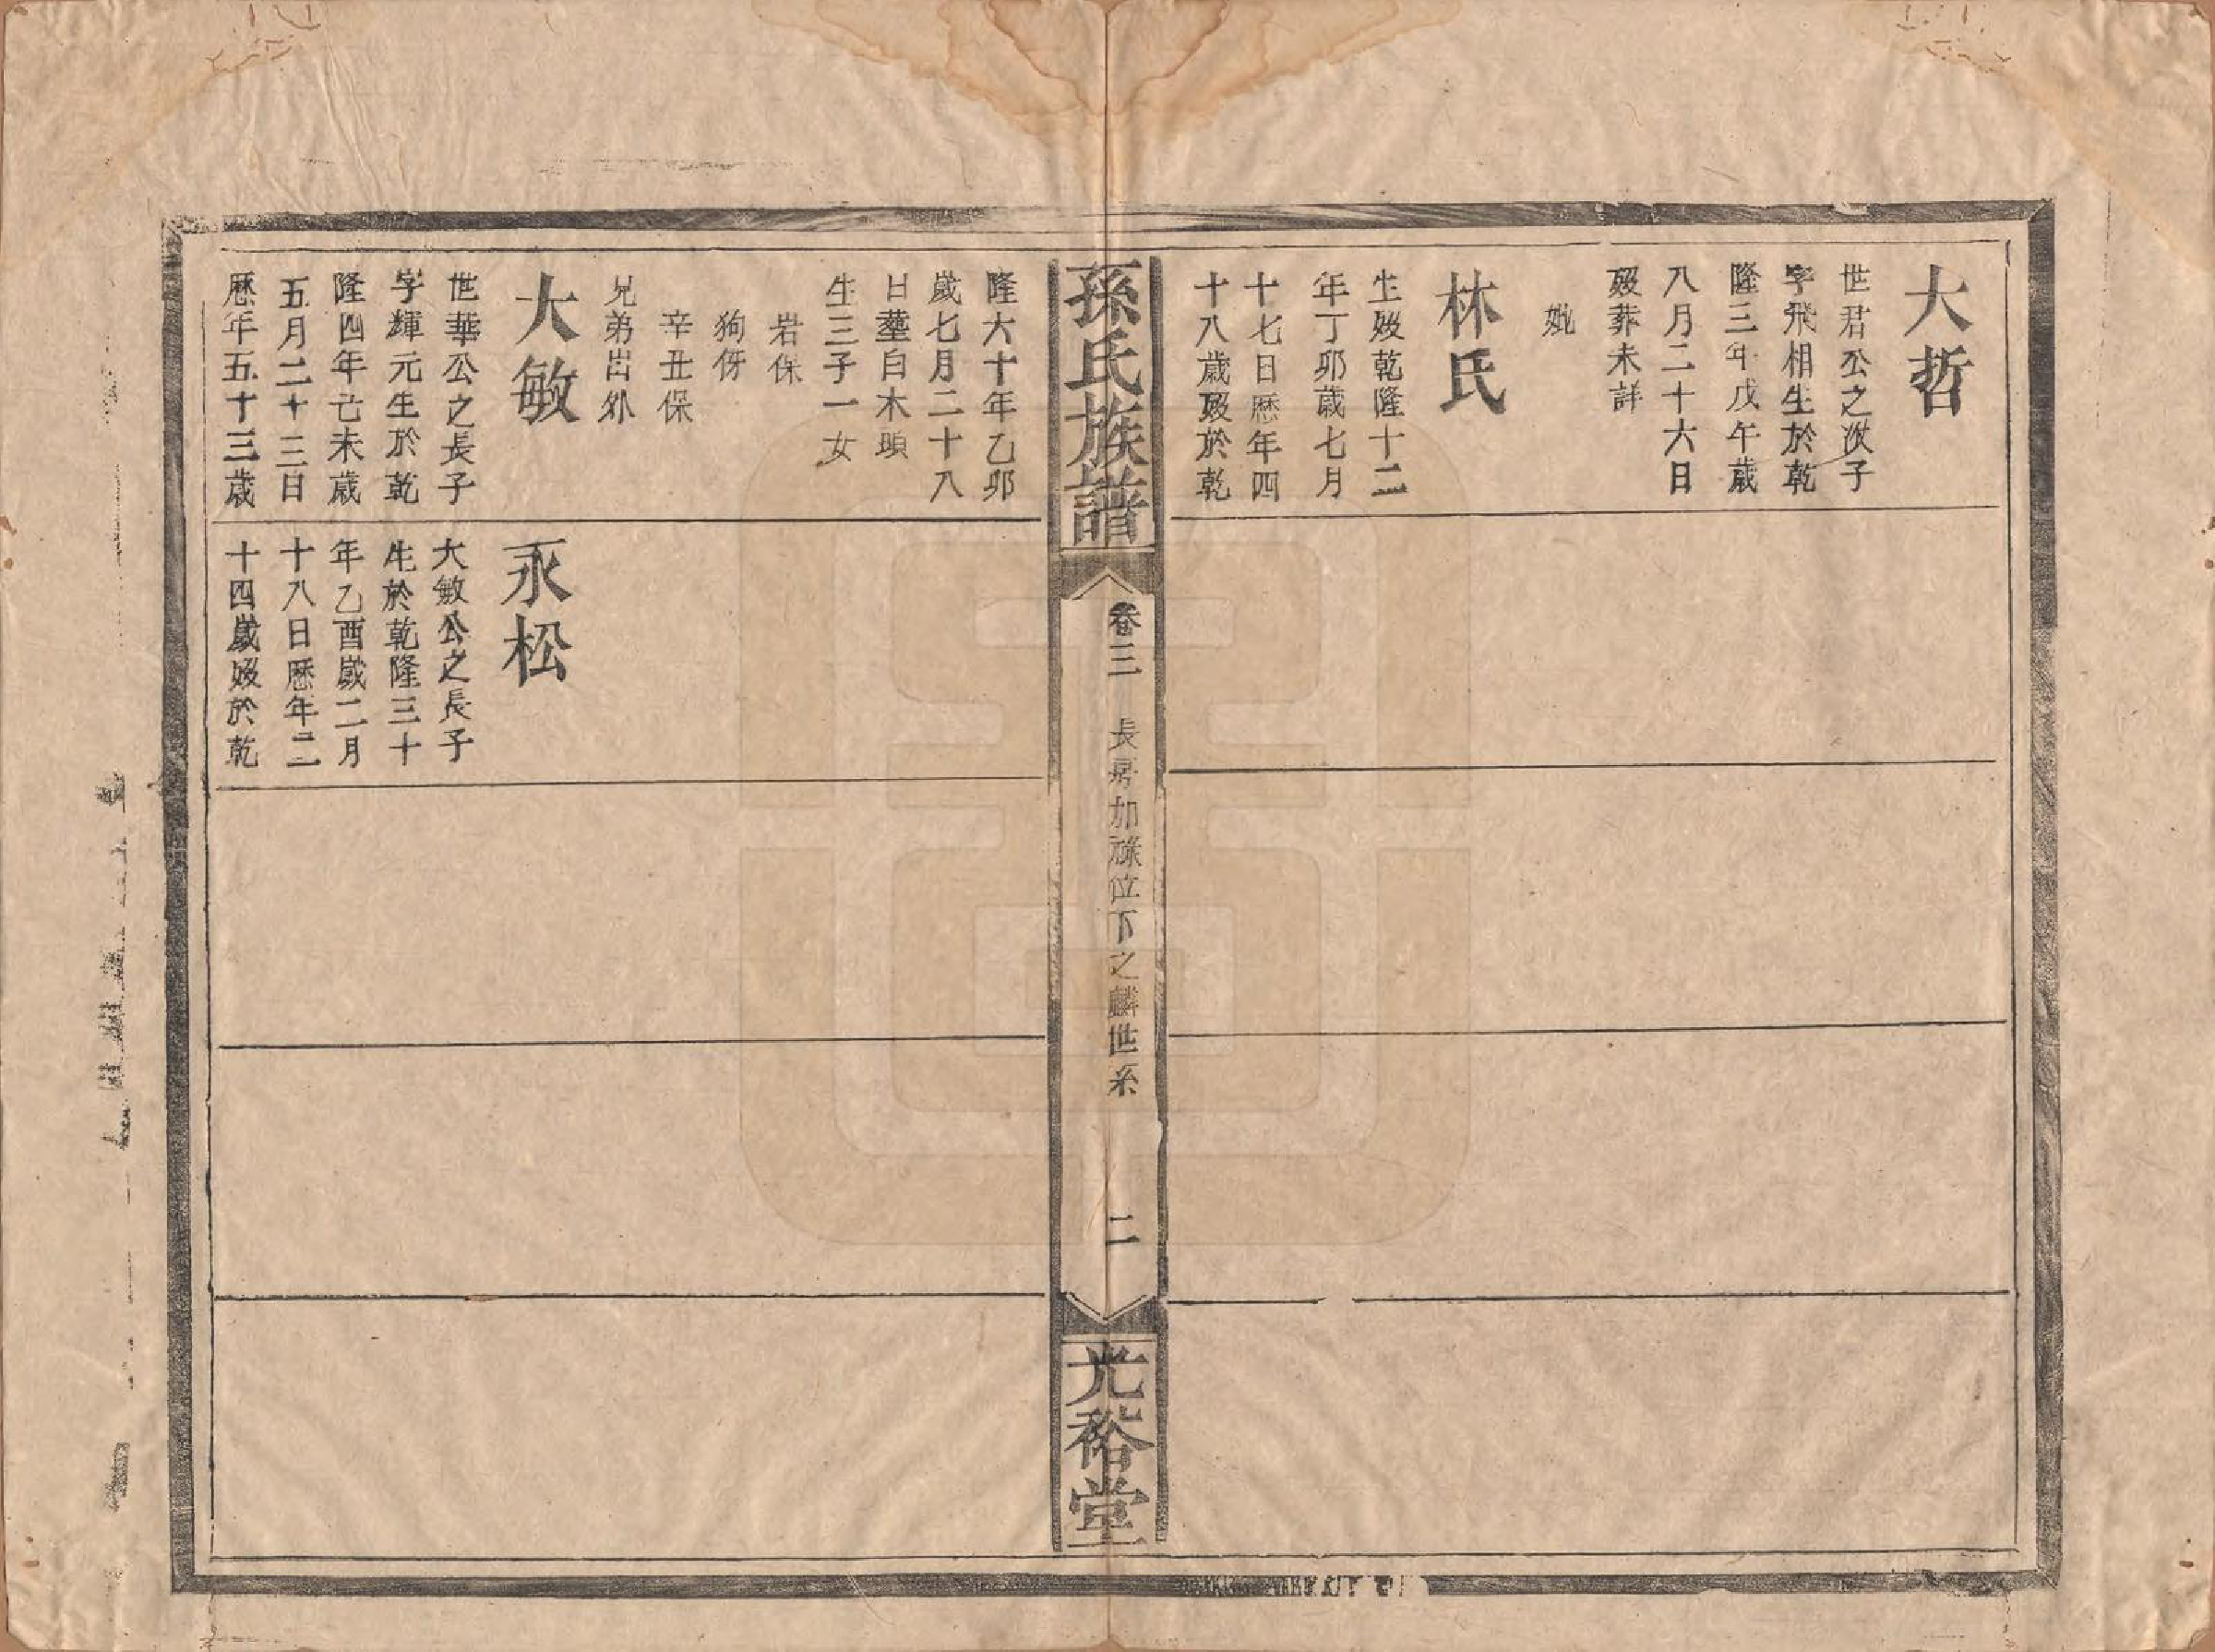 大哲
世君公之次子
字飛相生於乾
隆三年戊午歲
八月二十六日
歿葬未詳
妣
林氏
生歿乾隆十二
年丁卯歲七月
十七日歷年四
十八歲歿於乾
孫氏族譜
卷三
長房加祿位下之麟世系
二
光裕堂
隆六十年乙卯
歲七月二十八
日墓自木頭
生三子一女
岩保
狗伢
辛丑保
兄弟出外
大敏
世華公之長子
字輝元生於乾
隆四年己未歲
五月二十三日
歷年五十三歲
永松
大敏公之長子
生於乾隆三十
年乙酉歲二月
十八日歷年二
十四歲歿於乾